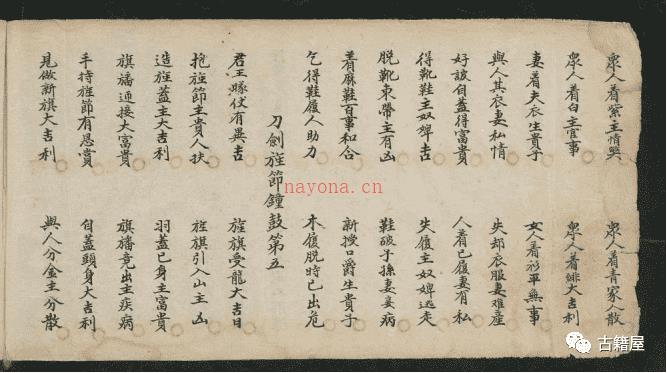 衆人着紫主情 衆人着青家人散
衆人着白主官事 衆人着緋大吉利
妻着夫衣生貴子 女人着衫平無事
與人其衣妻私情 失却衣服妻難産
好設自蓋得富貴 人着己履妻有私
得靴鞋主奴婢吉 失履主奴婢逃走
脱靴束帶主有凶 鞋破子孫妻妾病
着麻鞋百事和合 新授口爵生貴子
乞得鞋履人助力 木履脱時已出危
刀劍旌節鐘鼓第五
君王隊仗有異吉 旌旗受龍大吉日
抱旌節主貴人扶 旌旗引入山主凶
造旌蓋主大吉利 羽蓋己身主富貴
旗旛迎接大富貴 旗旛竟出主疾病
手持旌節有恩賞 自蓋頭身大吉利
見做新旗大吉利 與人分金主分散
nayona.cn
古籍屋